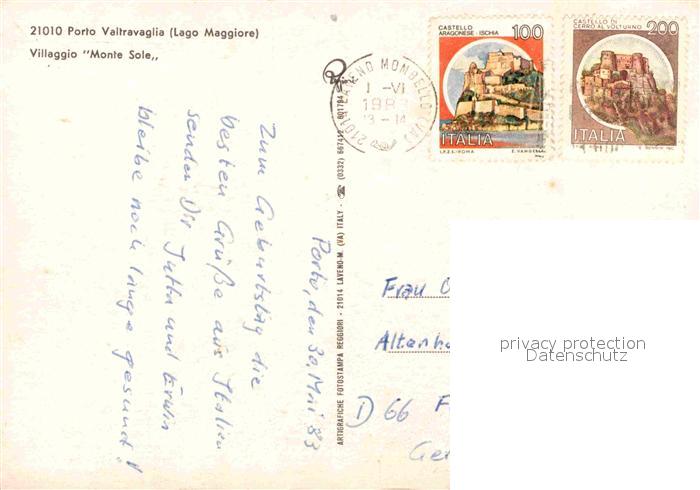 21010 Porto Valtravaglia (Lago Maggiore)
Villaggio "Monte Sole,,
Porto, den 30. Mai 83
Zum Geburtstag die
besten Grüße aus Italien
senden Dir Jutta und Erwin
bleibe noch lange gesund!
ARTIGRAFICHE FOTOSTAMPA REGGIORI - 21014 LAVENO-M. (VA) ITALY - ☎ (0332) 667412 601794
21014 LAVENO MOMBELLO (VA)
1 -VI
1983
13 - 14
CASTELLO
ARAGONESE - ISCHIA
100
ITALIA
I.P.Z.S. - ROMA
CASTELLO DI
CERRO AL VOLTURNO
200
ITALIA
Frau
D 66
privacy protection
Datenschutz